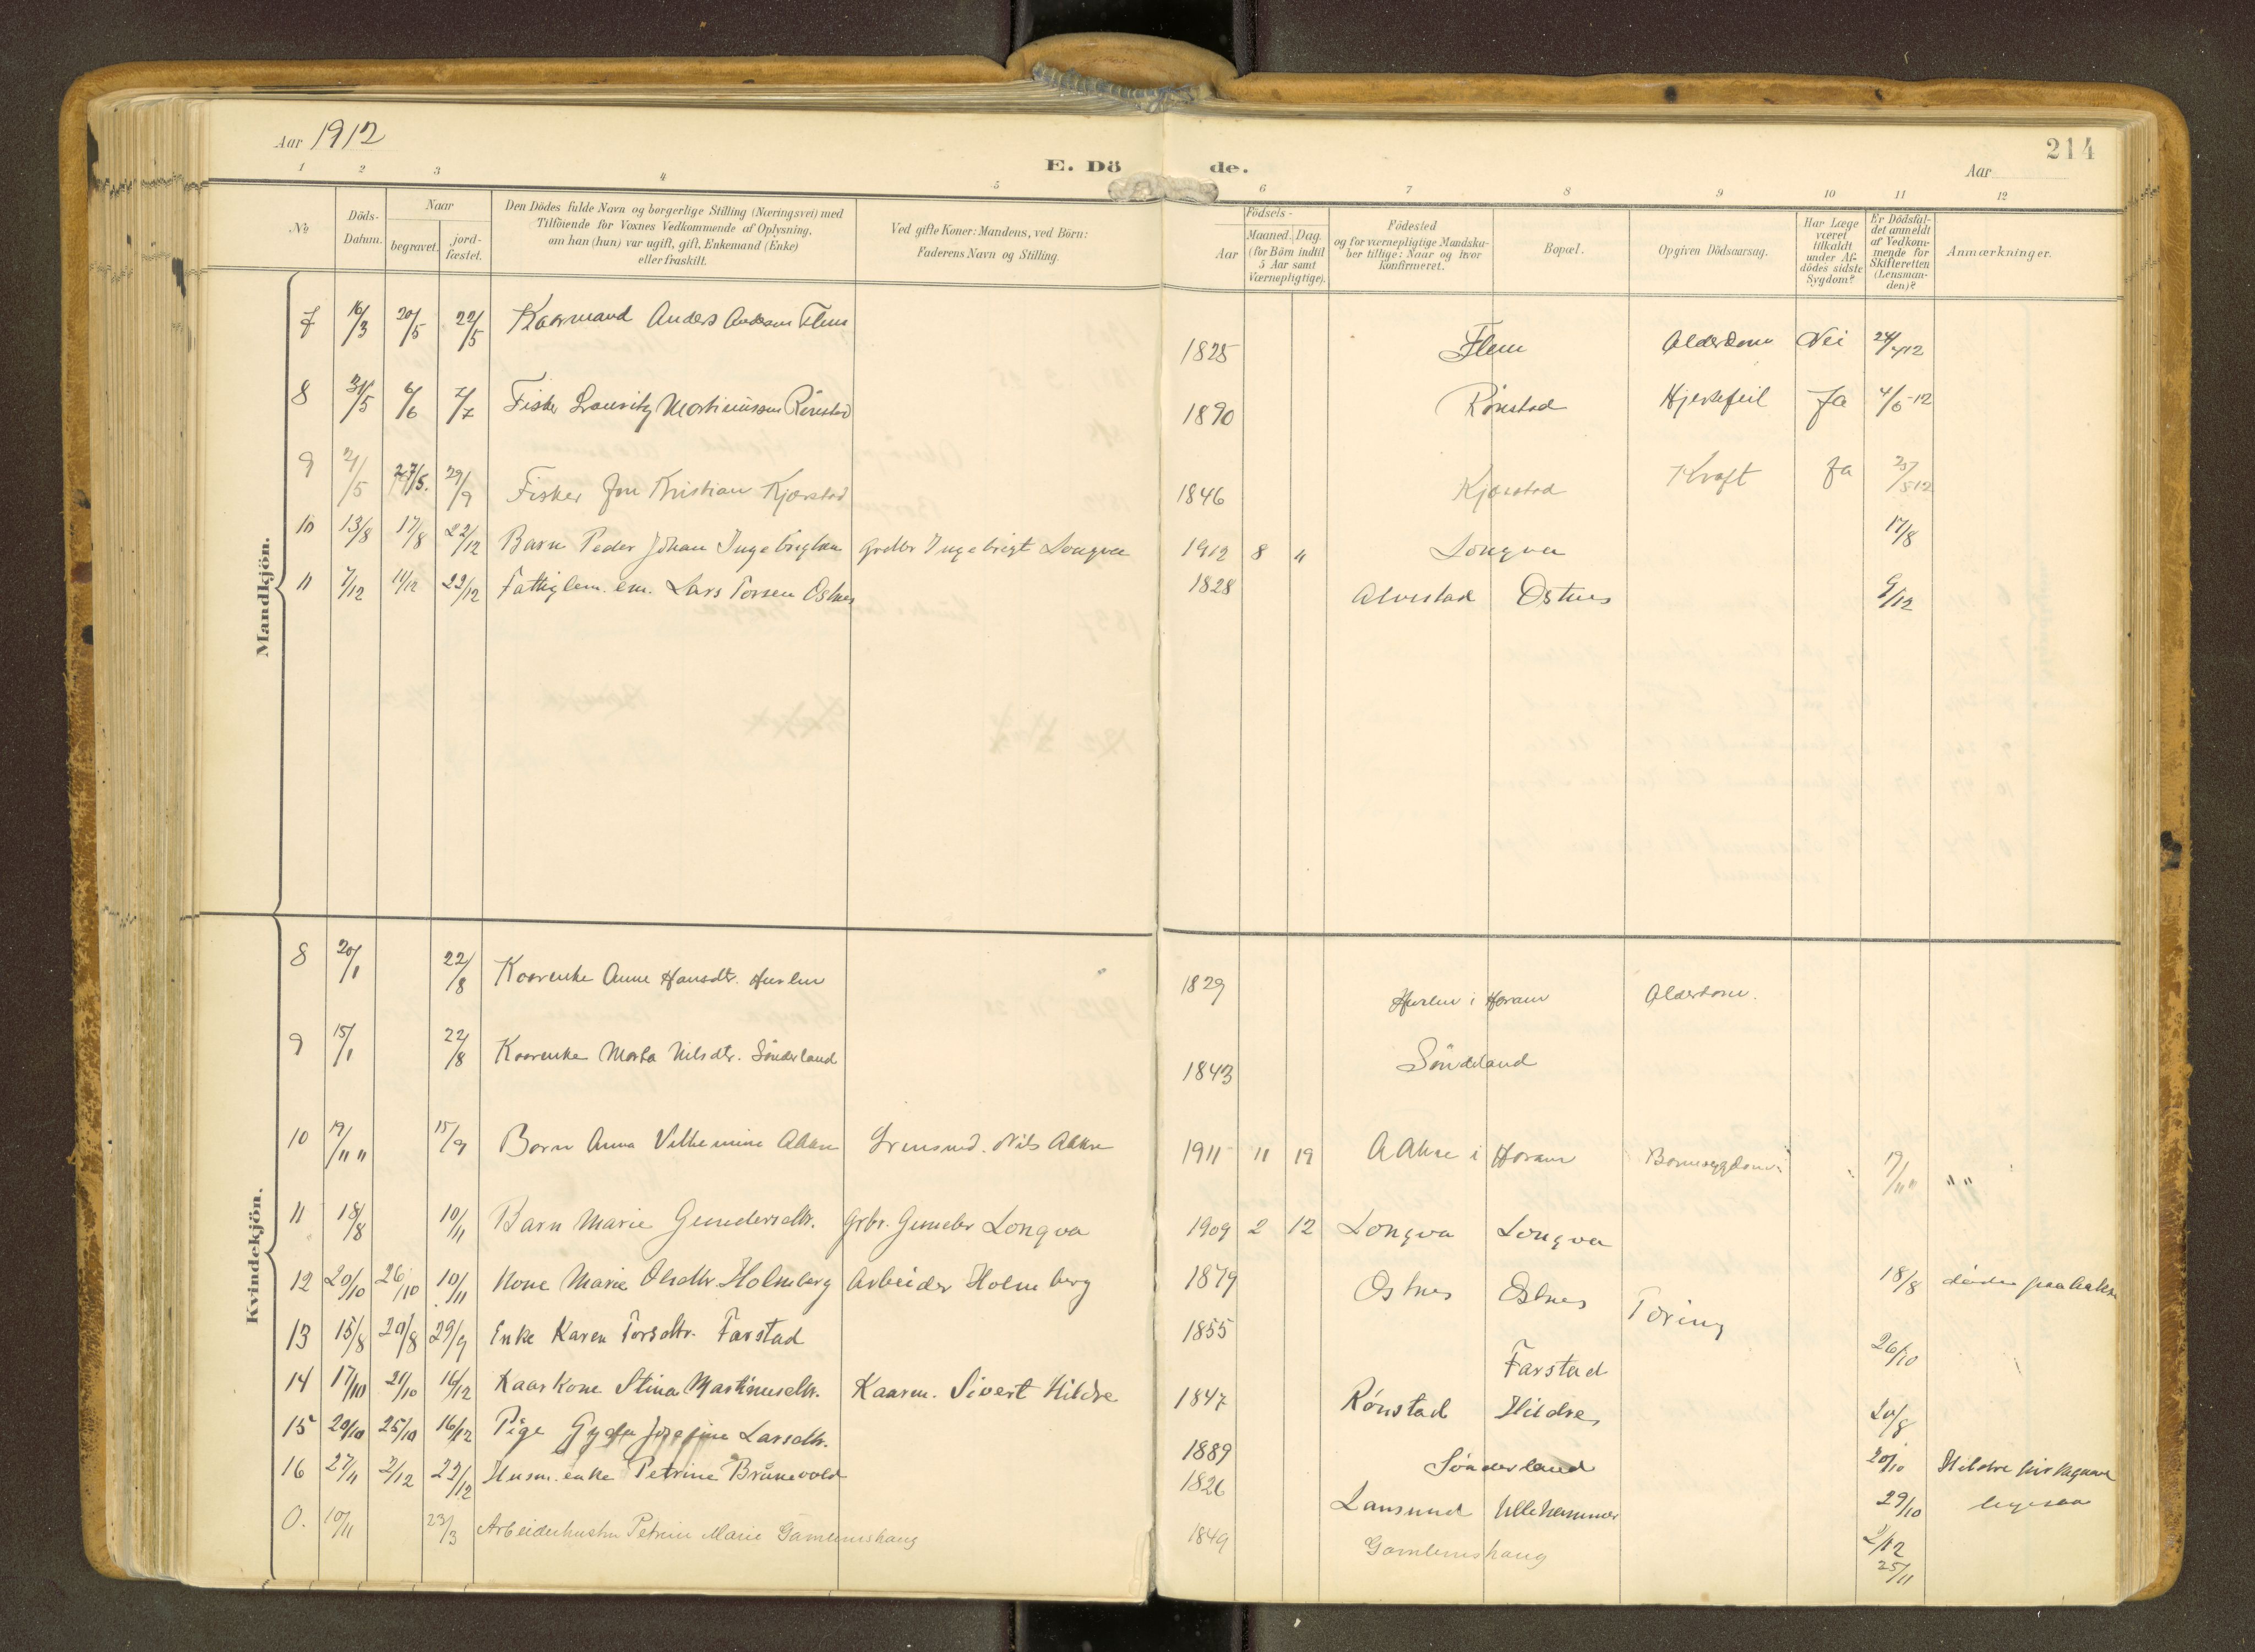 Aar 1912
E. Dö de.
Aar
214
1 2 3 4 5 6 7 8 9 10 11 12
No
Döds-Datum.
Naar
begravet.
jord-fæstet.
Den Dödes fulde Navn og borgerlige Stilling (Næringsvei) med
Tilföiende for Voxnes Vedkommende af Oplysning,
om han (hun) var ugift, gift, Enkemand (Enke)
eller fraskilt.
Ved gifte Koner: Mandens, ved Börn:
Faderens Navn og Stilling.
Födsels-
Aar
Maaned. Dag.
(for Börn indtil
5 Aar samt
Værnepligtige).
Födested
og for værnepligtige Mandska-
ber tillige: Naar og hvor
Konfirmeret.
Bopæl.
Opgiven Dödsaarsag.
Har Læge
været
tilkaldt
under Af-
dödes sidste
Sygdom?
Er Dödsfal-
det anmeldt
af Vedkom-
mende for
Skifteretten
(Lensman-
den)?
Anmærkninger.
Mandkjön.
7 16/3 20/5 22/5 Kaarmand Anders Flem 1825 Flem Alderdom Nei
8 31/5 6/6 7/7 Fisker Lauritz Martinussen Rönstad 1890 Rönstad Hjertefeil Ja 4/6-12
9 21/5 27/5. 29/9 Fisker Jon Kristian Kjærstad 1846 Kjærstad Kræft Ja
10 13/8 17/8 22/12 Barn Peder Johan Ingebrigtsen Ingebrigt Longva 1912 8 " Longva 17/8
11 7/12 11/12 22/12 Fattiglem. em. Lars Torsen Ostnes 1828 Alvestad Ostnes 9/12
Kvindekjön.
8 20/1 22/8 Kaarenke Anne Hansdtr. 1829 i Haram Alderdom.
9 15/1 22/8 Kaarenke Marta Nilsdtr. Sönderland 1843 Sönderland
10 19/11 " 15/9 Barn Anna Vilhelmine Aakre Nils Aakre 1911 11 19 Aakre i Haram Barnesygdom 19/11 " " "
11 18/8 10/11 Barn Marie Gundersdtr. Grbr. Gunder Longva 1909 2 12 Longva Longva
12 20/10 26/10 10/11 Kone Marie Olsdtr. Holmberg Arbeider Holmberg 1879 Ostnes Ostnes Tæring 18/8
13 15/8 20/8 29/9 Enke Karen Torsdtr. Farstad 1855 Farstad 26/10
14 17/10 21/10 16/12 Kaarkone Stina Martinusdtr. Kaarm. Sivert Hildre 1847 Rönstad Hildre 20/8
15 20/10 25/10 16/12 Pige Gyda Josefine Larsdtr. 1889 Sönderland 20/10 Hildre kirkegaard
16 27/11 2/12 22/12 Husm. enke Petrine Brunevold 1826 Lausund Ullehammer 29/10
2/12
0. 10/11 23/3 Arbeiderhustru Petrine Marie Gamlemshaug 1849 Gamlemshaug 25/11